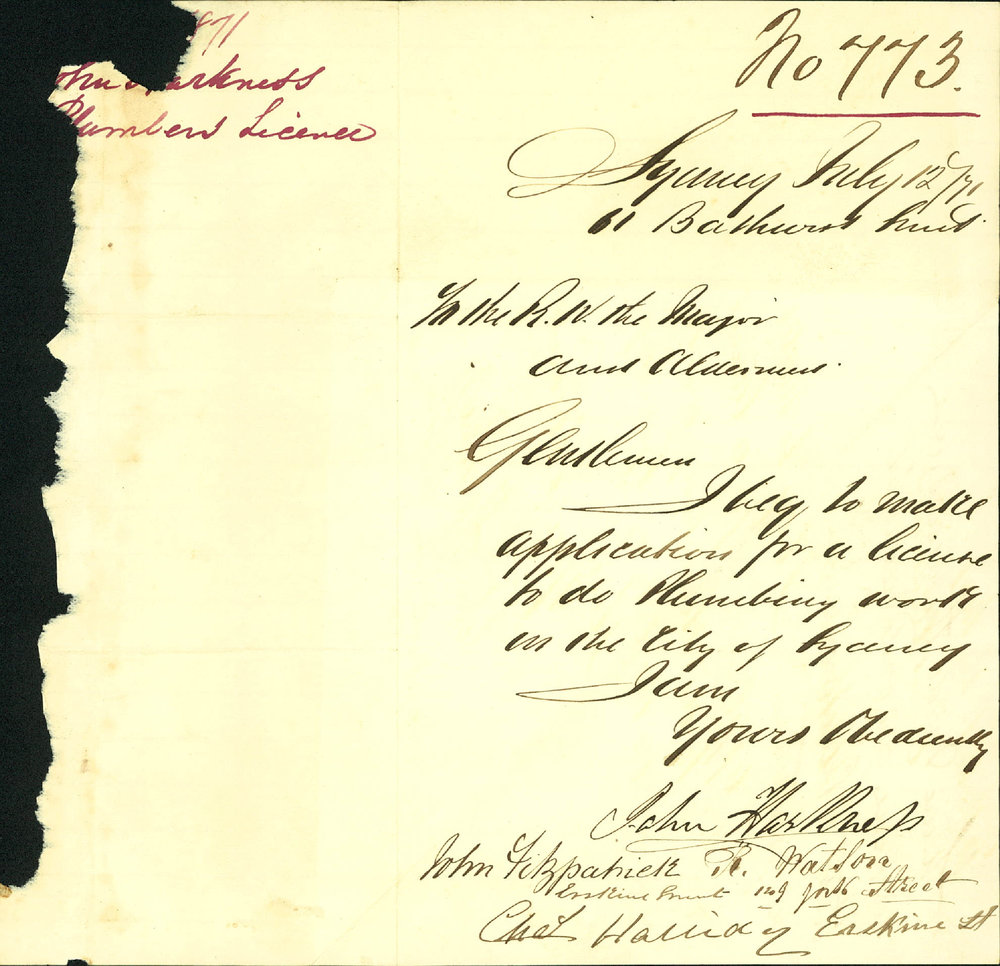 1871
John Harkness
Plumbers Licence
No 773.
Sydney July 12/71
61 Bathurst Street
To the R. W. the Mayor
and Aldermen.
Gentlemen
I beg to make
application for a license
to do Plumbing work
in the City of Sydney
I am
Yours Obediently
John Harkness
John Fitzpatrick R. Watson
Erskine Street 129 York Street
Chas Halliday Erskine St